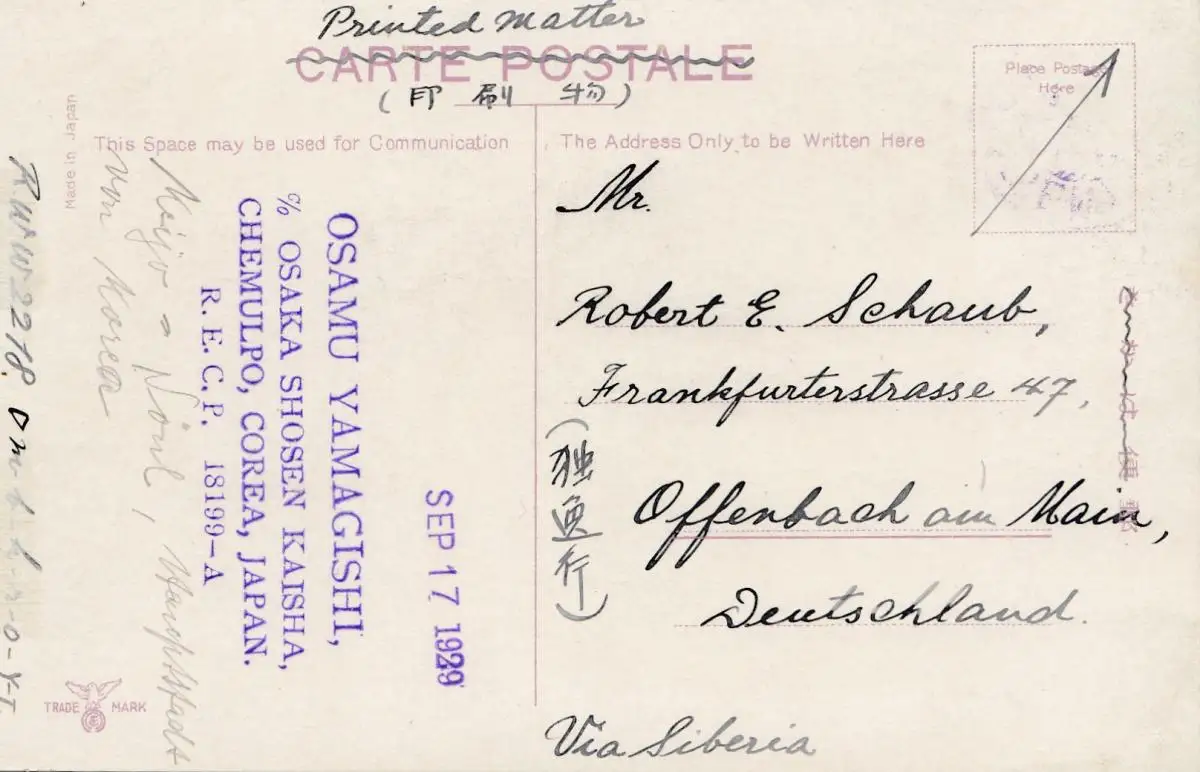 Printed matter
CARTE POSTALE
(印刷物)
Place Postage
Here
Made in Japan
This Space may be used for Communication
The Address Only to be Written Here
Mr.
Robert E. Schaub,
Frankfurterstrasse 47,
Offenbach am Main,
Deutschland.
(独逸行)
Via Siberia
OSAMU YAMAGISHI,
% OSAKA SHOSEN KAISHA,
CHEMULPO, COREA, JAPAN.
R. E. C. P. 18199-A
SEP 17 1929
Keijo = Söul, Hauptstadt
von Korea
TRADE MARK